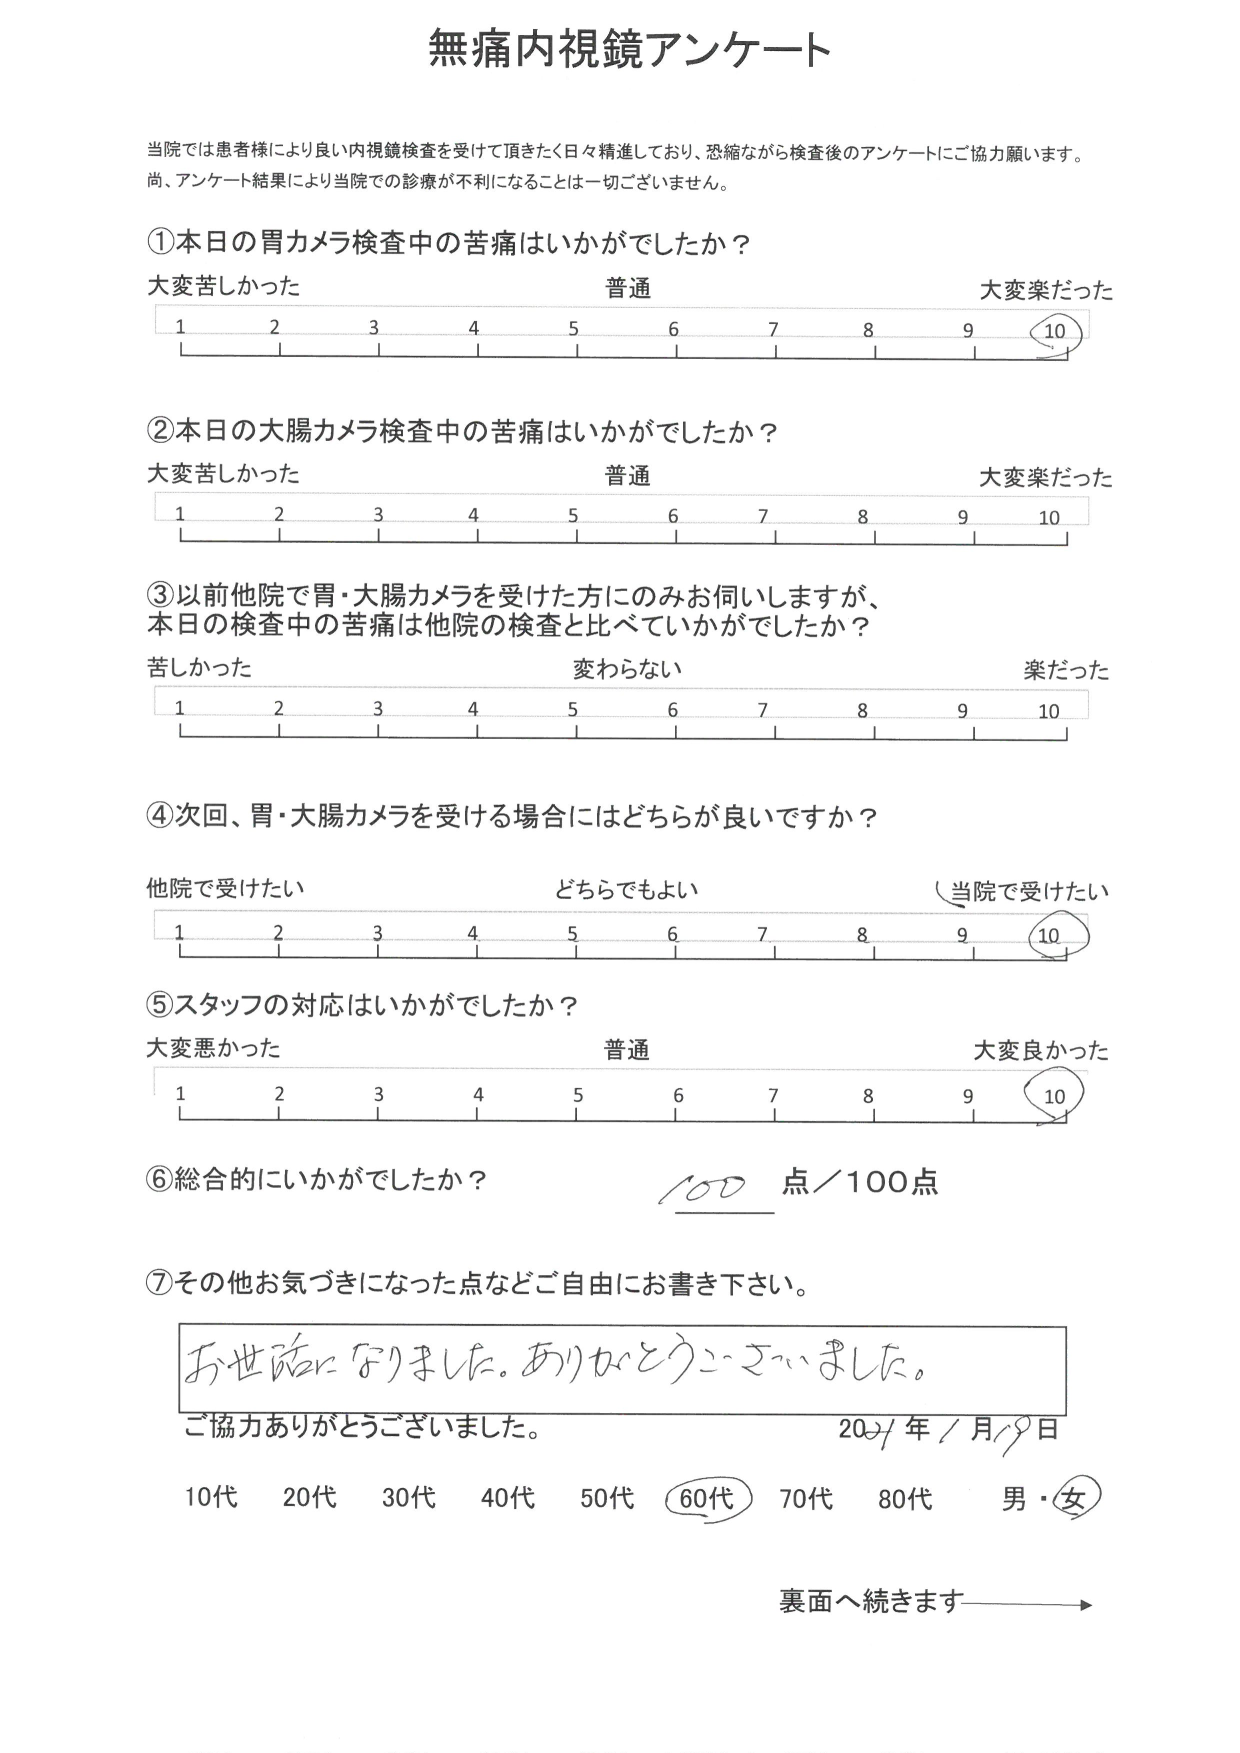 無痛内視鏡アンケート
当院では患者様により良い内視鏡検査を受けて頂きたく日々精進しており、恐縮ながら検査後のアンケートにご協力願います。
尚、アンケート結果により当院での診療が不利になることは一切ございません。
①本日の胃カメラ検査中の苦痛はいかがでしたか？
大変苦しかった 普通 大変楽だった
1 2 3 4 5 6 7 8 9 10
②本日の大腸カメラ検査中の苦痛はいかがでしたか？
大変苦しかった 普通 大変楽だった
1 2 3 4 5 6 7 8 9 10
③以前他院で胃・大腸カメラを受けた方にのみお伺いしますが、
本日の検査中の苦痛は他院の検査と比べていかがでしたか？
苦しかった 変わらない 楽だった
1 2 3 4 5 6 7 8 9 10
④次回、胃・大腸カメラを受ける場合にはどちらが良いですか？
他院で受けたい どちらでもよい 当院で受けたい
1 2 3 4 5 6 7 8 9 10
⑤スタッフの対応はいかがでしたか？
大変悪かった 普通 大変良かった
1 2 3 4 5 6 7 8 9 10
⑥総合的にいかがでしたか？ 100 点／100点
⑦その他お気づきになった点などご自由にお書き下さい。
お世話になりました。ありがとうございました。
ご協力ありがとうございました。 2021年1月19日
10代 20代 30代 40代 50代 60代 70代 80代 男・女
裏面へ続きます